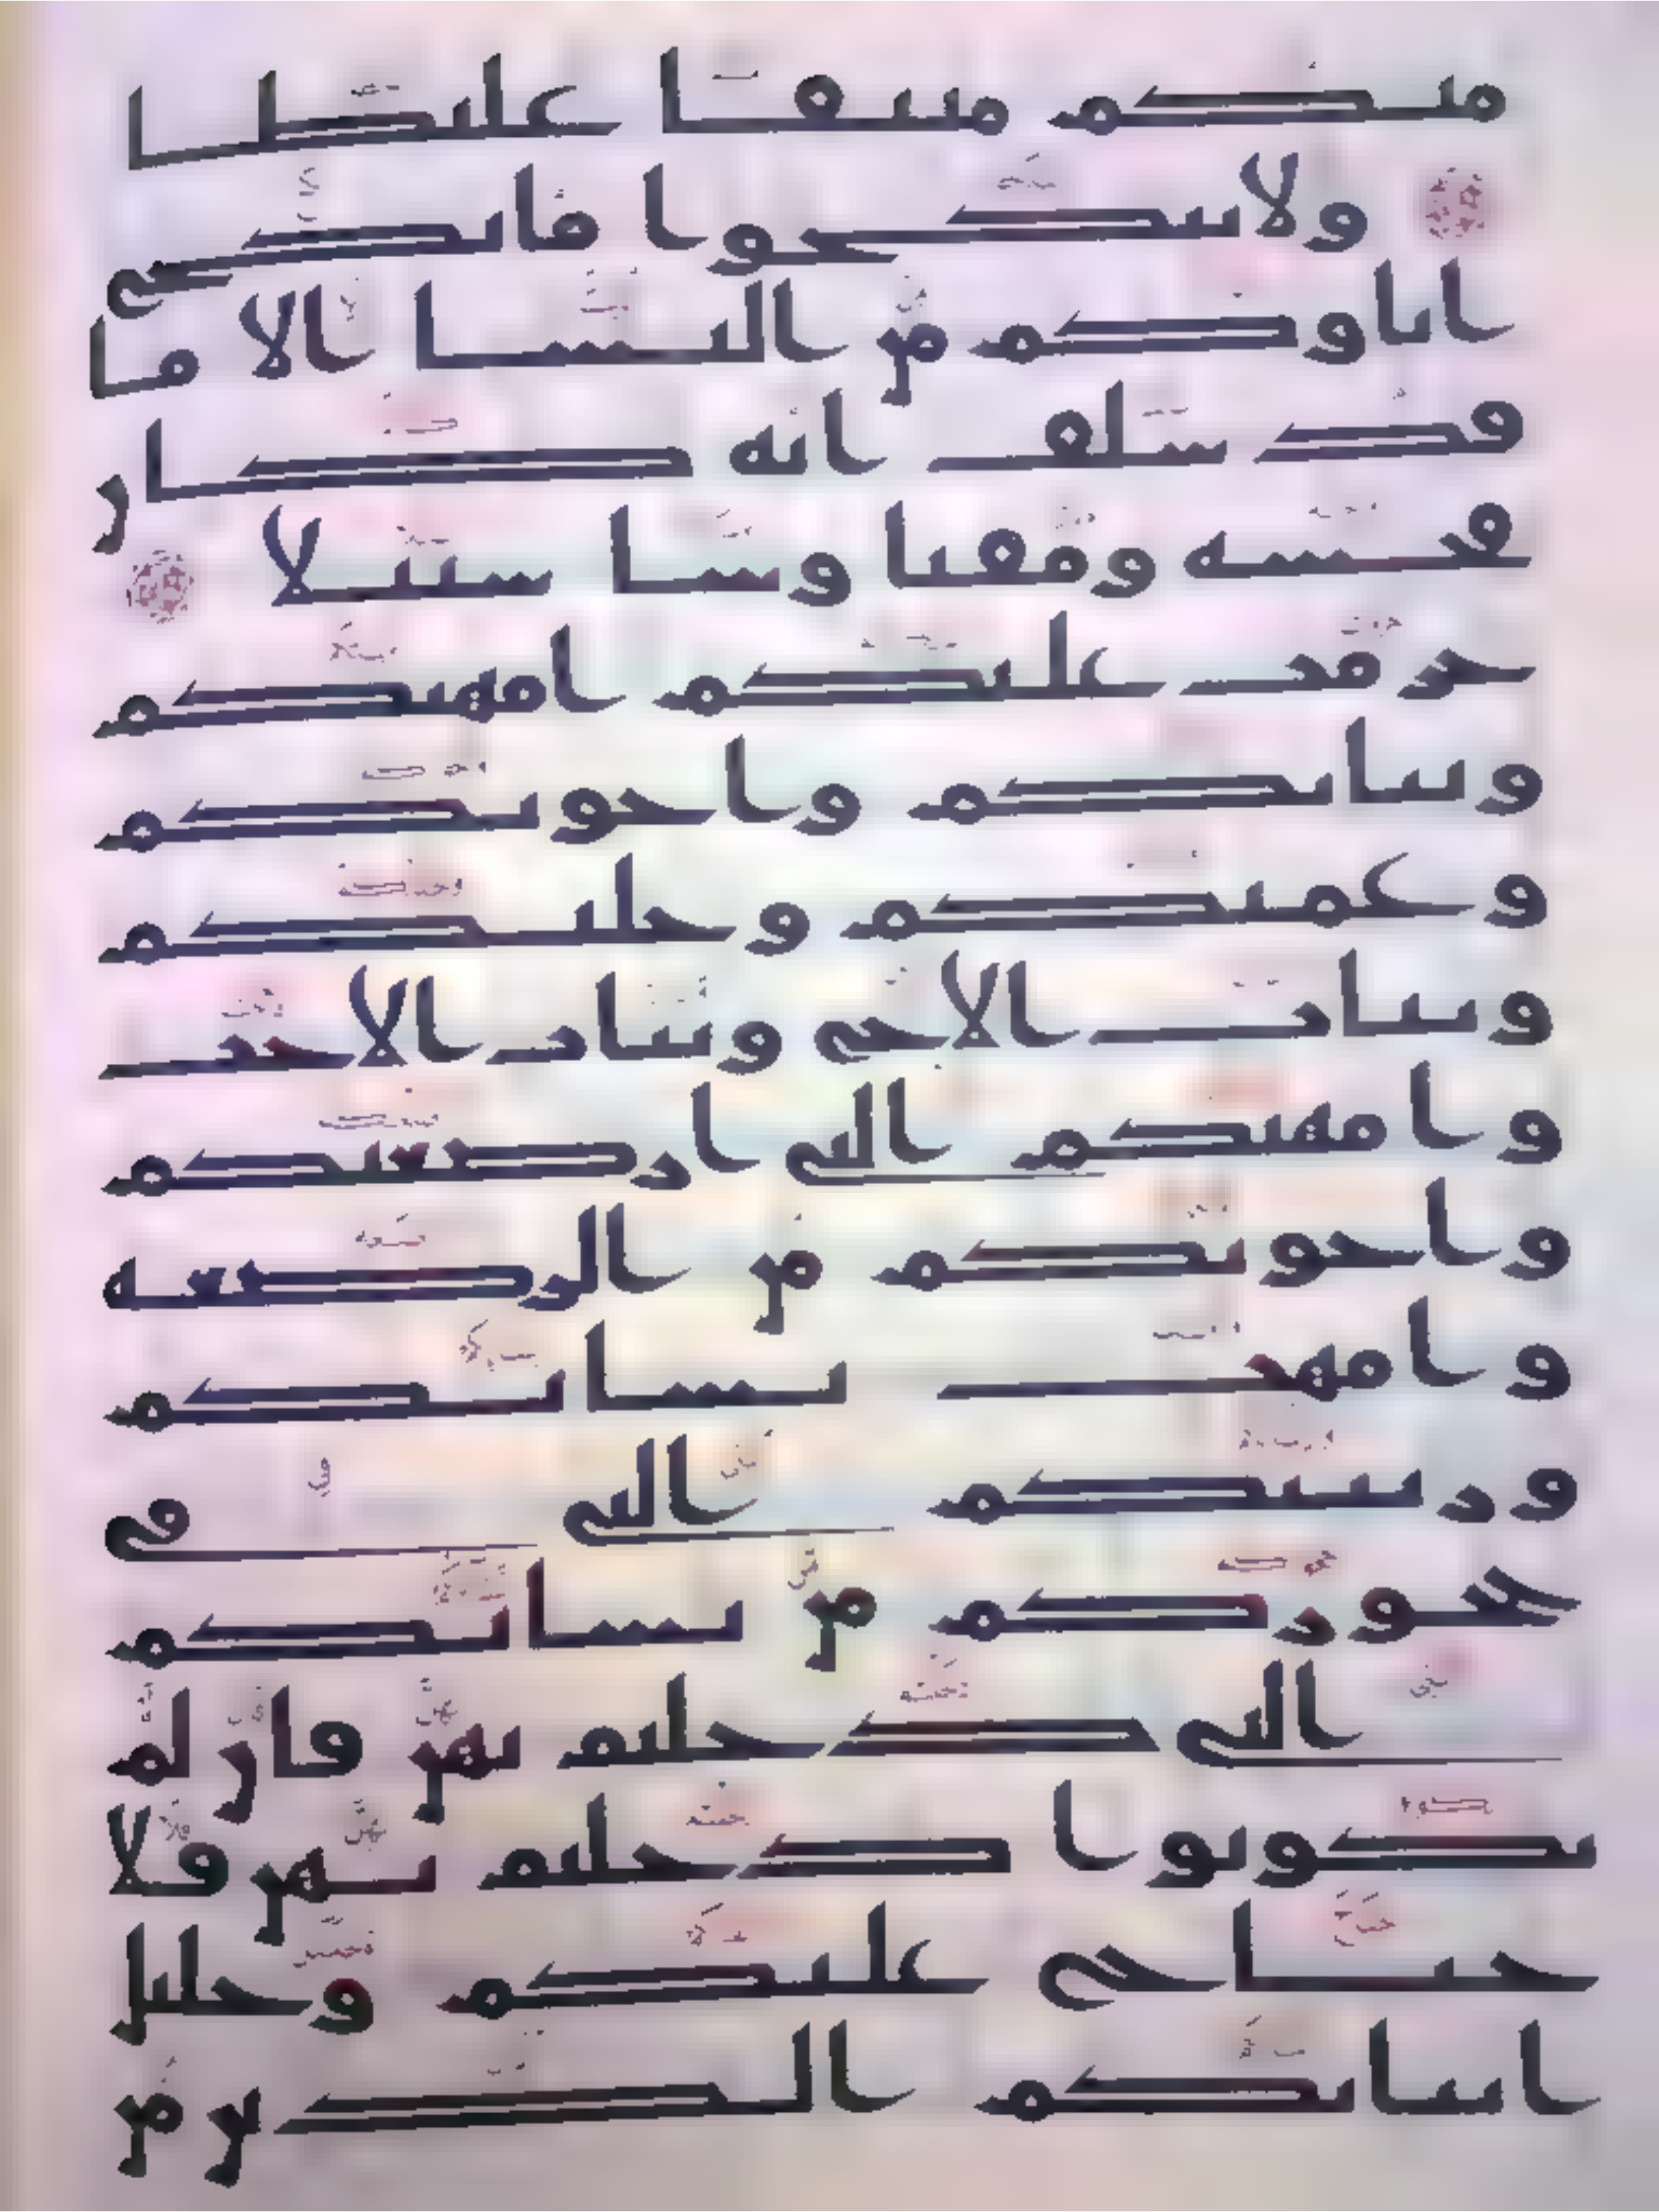 منكم ميثقا غليظا
ولا تنكحوا ما نكح
اباوكم من النسا الا ما
قد سلف انه كان
فحشه ومقتا وسا سبيلا
حرمت عليكم امهتكم
وبناتكم واخوتكم
وعمتكم وخلتكم
وبنات الاخ وبنات الاخت
وامهتكم التي ارضعنكم
واخوتكم من الرضعه
وامهت نسائكم
وربئبكم التي في
حجوركم من نسائكم
التي دخلتم بهن فان لم
تكونوا دخلتم بهن فلا
جناح عليكم وحلئل
ابنائكم الذين من